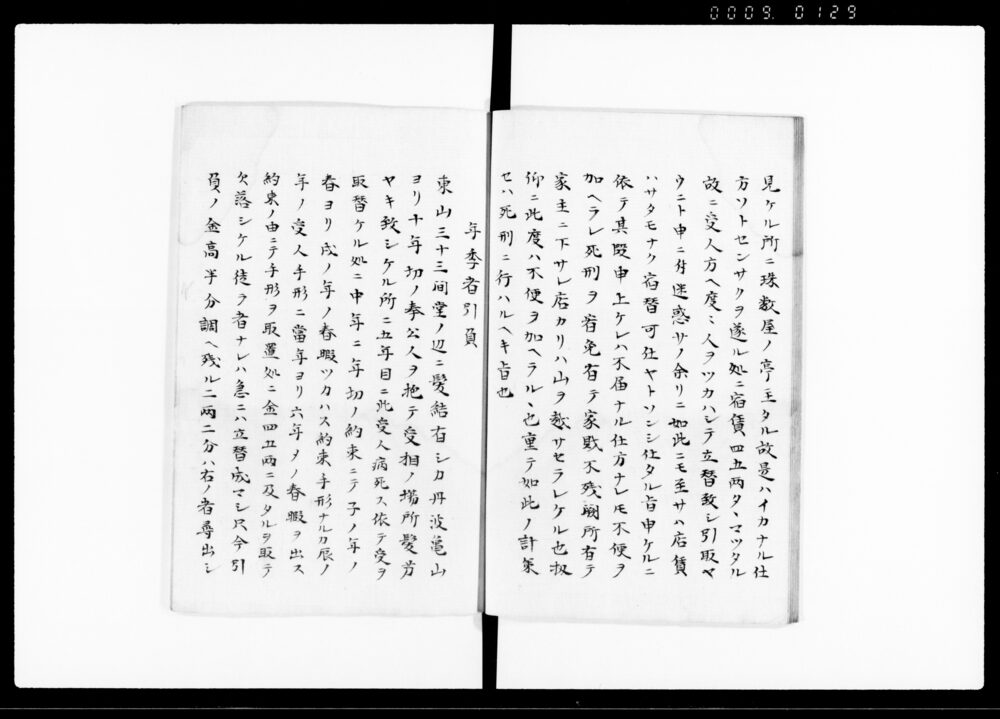 0009. 0129
見ケル所ニ珠数屋ノ亭主タル故是ハイカナル仕
方ソトセンサクヲ遂ル処ニ宿賃四五両タヽマツタル
故ニ受人方ヘ度々人ヲツカハシテ立替致シ引取ヤ
ウニト申ニ付迷惑サノ余リニ如此ニモ至サハ店賃
ハサタモナク宿替可仕ヤトソンシ仕タル旨申ケルニ
依テ其段申上ケレハ不届ナル仕方ナレモ不便ヲ
加ヘラレ死刑ヲ宥免有テ家財不残闕所有テ
家主ニ下サレ店カリハ山ヲ越サセラレケル也扨
仰ニ此度ハ不便ヲ加ヘラルヽ也重テ如此ノ計策
セハ死刑ニ行ハルヘキ旨也
年季者引負
東山三十三間堂ノ辺ニ髪結有シカ丹波亀山
ヨリ十年切ノ奉公人ヲ抱テ受相ノ場所髪労
ヤキ致シケル所ニ五年目ニ此受人病死ス依テ受ヲ
取替ケル処ニ中年二年切ノ約束ニテ子ノ年ノ
春ヨリ戌ノ年ノ春暇ツカハス約束手形ナルカ辰ノ
年ノ受人手形ニ當年ヨリ六年メノ春暇ヲ出ス
約束ノ由ニテ手形ヲ取置処ニ金四五両ニ及タルヲ取テ
欠落シケル徒ラ者ナレハ急ニハ立替成マシ只今引
負ノ金高半分調ヘ残ル二両二分ハ右ノ者尋出シ